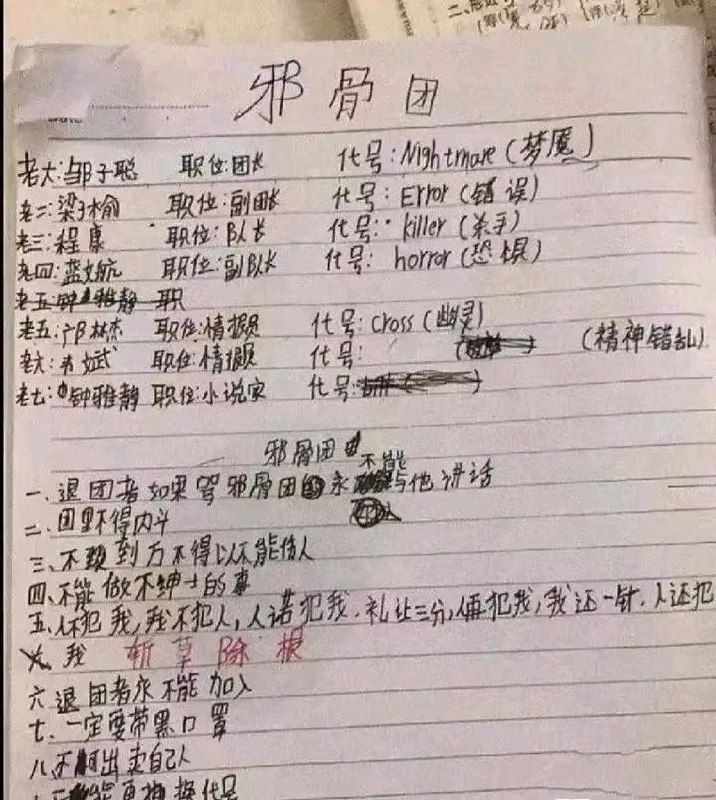 邪骨团
老大:邹子聪 职位:团长 代号:Nightmare(梦魇)
老二:梁子榆 职位:副团长 代号:Error(错误)
老三:程康 职位:队长 代号:killer(杀手)
老四:蓝文航 职位:副队长 代号:horror(恐惧)
老五:钟雅静 职
老五:邝林杰 职位:情报员 代号:Cross(幽灵)
老六:韦斌武 职位:情报员 代号: (精神错乱)
老七:钟雅静 职位:小说家 代号:
邪骨团
一、退团者如果骂邪骨团永不能与他讲话
二、团里不得内斗
三、不到万不得以不能伤人
四、不能做不绅士的事
五、人不犯我,我不犯人,人若犯我,礼让三分,人再犯我,我还一针,人还犯
我 斩草除根
六、退团者永不能加入
七、一定要带黑口罩
八、不出卖自己人